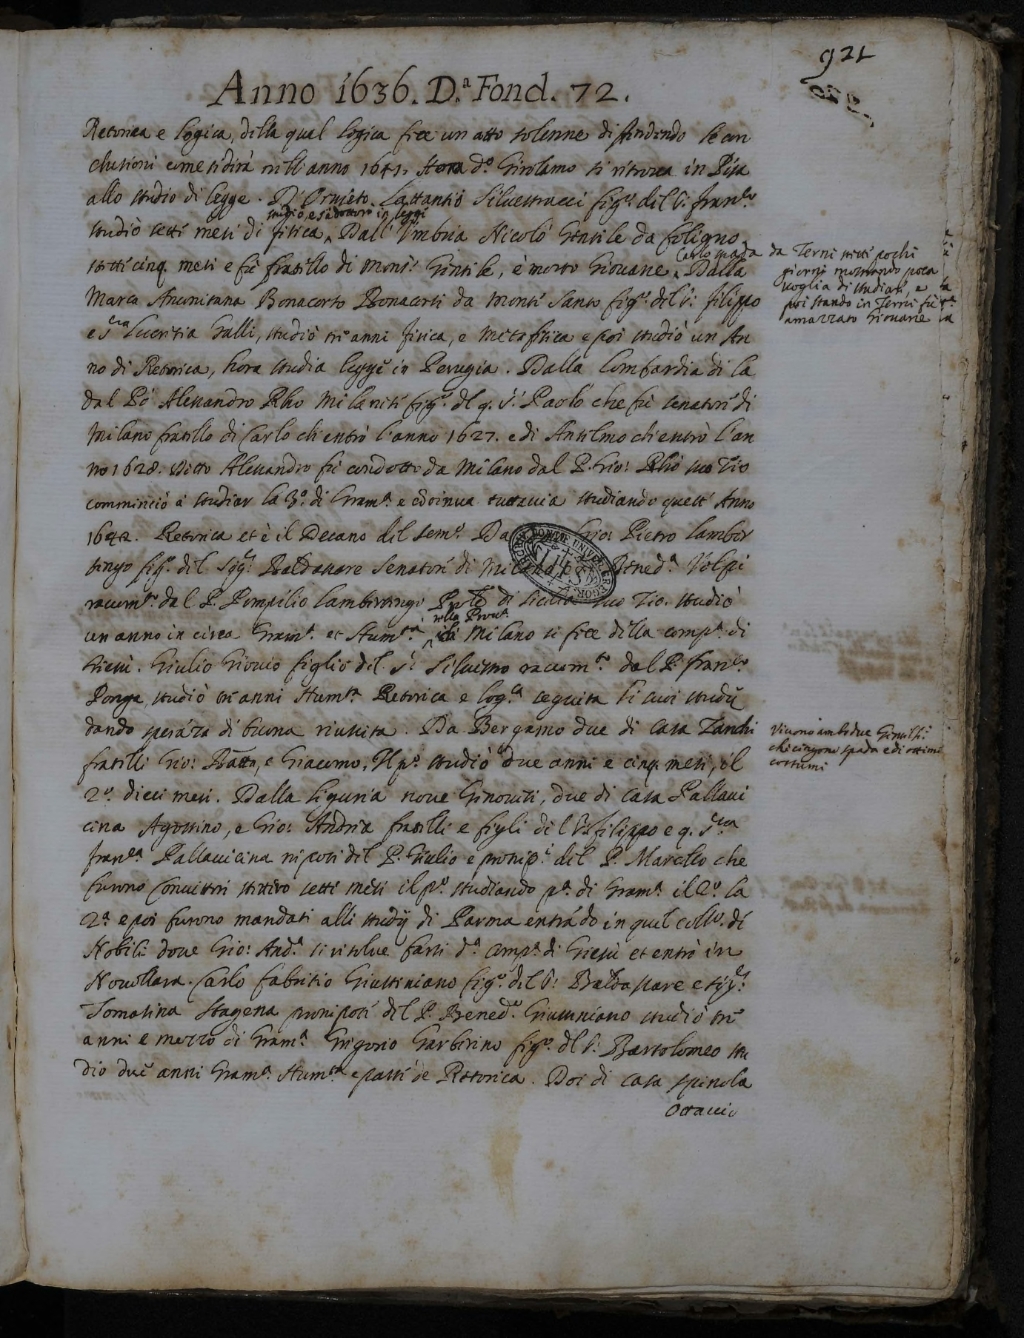 921
Anno 1636. D.ª Fond. 72.
Retorica e logica, della qual logica fece un atto solenne difendendo le con
clusioni come si dirà nell'anno 1641. Hora d.º Girolamo si ritrova in Pisa
allo studio di legge. D'Orvieto Lattantio Silvestrucci fig.º del S.r fran.co
studiò e si dottorò in leggi
studiò sette mesi di fisica. Dall'Umbria Nicolò Gentile da foligno
stette cinq mesi e fù fratello di mons.r Gentile, è morto Giovane. Dalla
Carlo spada da Terni stette pochi
giorni mostrando poca
voglia di studiare, e
poi stando in Terni fù
amazzato Giovane
Marca Anconitana Bonacorso Bonacorsi da Monte Santo fig.º del S.r filippo
e S.ra Lucretia Galli, studiò tre anni fisica, e metafisica e poi studiò un An
no di Retorica, hora studia legge in Perugia. Dalla Lombardia di la
dal Pò Alessandro Rho Milanese fig.º del q. S.r Paolo che fù senatore di
Milano fratello di Carlo ch'entrò l'anno 1627. e di Anselmo ch'entrò l'an
no 1628. detto Alessandro fù condotto da Milano dal P. Gio: Rhò suo Tio
comminciò a studiar la 3.ª di Gram.ª e continua tuttavia studiando quest'Anno
1642. Retorica et è il Decano del sem.º Da Gio: Pietro Lamber
tengo fig.º del Sig.r Baldassare Senatore di Milano Bened.ª Volpi
racom.to dal P. Pompilio Lambertengo di Sicilia suo Tio. studiò
nella Prov.ª
un anno in circa Gram.ª et Hum.tà di Milano si fece della comp.ª di
Giesù. Giulio Giovio figlio del S.r Silvestro raccom.to dal P. fran.co
Ponga, studiò tre anni Hum.tà Retorica e log.ca seguita li suoi studij
dando speráza di buona riuscita. Da Bergamo due di casa Zanchi
vivono ambidue Gentilhi
che cingono spada e di ottimi
costumi
fratelli Gio: Batta, e Giacomo. Il p.º studiò due anni e cinq mesi, il
2.º dieci mesi. Dalla liguria nove Genovesi, due di casa Pallavi
cina Agostino, e Gio: Andrea fratelli e figli del S.r filippo e q. S.ra
fran.ca Pallavicina nipoti del P. Giulio e pronip.i del P. Marcello che
furono convittori stettero sette mesi il p.º studiando p.ª di Gram.ª il 2.º la
2.ª e poi furono mandati alli studij di Parma entrádo in quel coll.º di
Nobili: dove Gio: And.ª si risolse farsi d.ª comp.ª di Giesù et entrò in
Novellara. Carlo fabritio Giustiniano fig.º del S.r Baldassare e Sig.ra
Tomasina Stagena pronipote del P. Bened.º Giustiniano studiò tre
anni e mezzo di Gram.ª Grigorio Garbarino fig.º del S.r Bartolomeo stu
diò due anni Gram.ª Hum.tà e parte de Rettorica. Doi di casa spinola
Ottavio